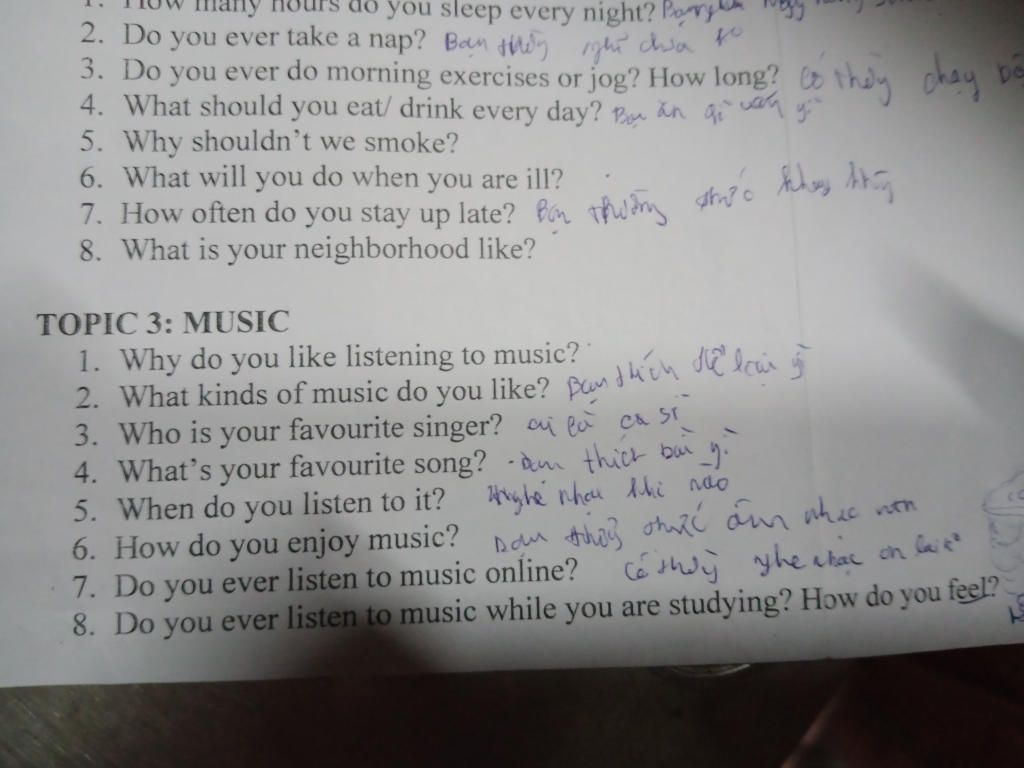 1. How many hours do you sleep every night?
2. Do you ever take a nap? Bạn
3. Do you ever do morning exercises or jog? How long? Có chạy
4. What should you eat/ drink every day? Bạn ăn gì uống gì
5. Why shouldn't we smoke?
6. What will you do when you are ill?
7. How often do you stay up late? Bạn thường thức
8. What is your neighborhood like?
TOPIC 3: MUSIC
1. Why do you like listening to music?
2. What kinds of music do you like? Bạn thích thể loại gì
3. Who is your favourite singer? ai là ca sĩ
4. What's your favourite song? thích bài gì
5. When do you listen to it? nghe nhạc khi nào
6. How do you enjoy music? âm nhạc
7. Do you ever listen to music online? Có nghe nhạc
8. Do you ever listen to music while you are studying? How do you feel?